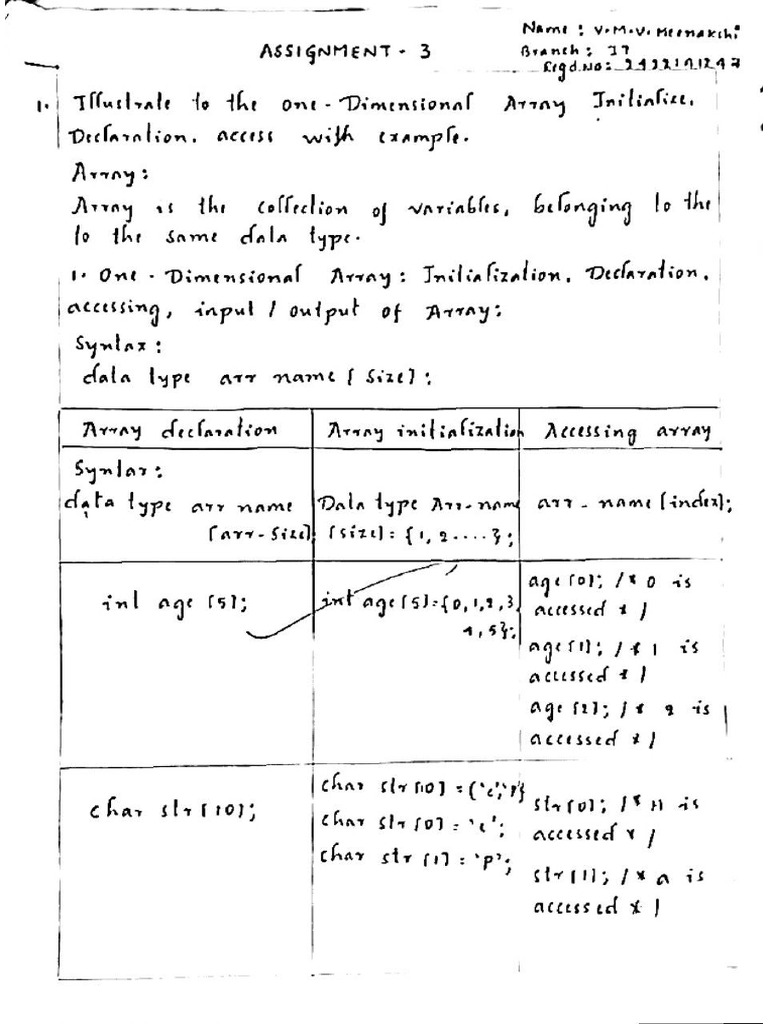 ASSIGNMENT - 3
Name : V.M.V. Meenakshi
Branch : IT
Regd.No:
1. Illustrate to the one - Dimensional Array Initialize,
Declaration, access with example.
Array:
Array is the collection of variables, belonging to the
to the same data type.
1. One - Dimensional Array: Initialization, Declaration,
accessing, input / output of Array:
Syntax:
data type arr name [size];
Array declaration
Array initialization
Accessing array
Syntax:
data type arr name
[arr-size];
Data type Arr-name
[size] = {1, 2 .....};
arr - name [index];
int age [5];
int age[5]={0,1,2,3,
4,5};
age[0]; /* 0 is
accessed */
age[1]; /* 1 is
accessed */
age[2]; /* 2 is
accessed */
char str[10];
char str[10] = {'c',
char str[0] = 'c';
char str[1] = 'p';
str[0]; /* H is
accessed */
str[1]; /* a is
accessed */